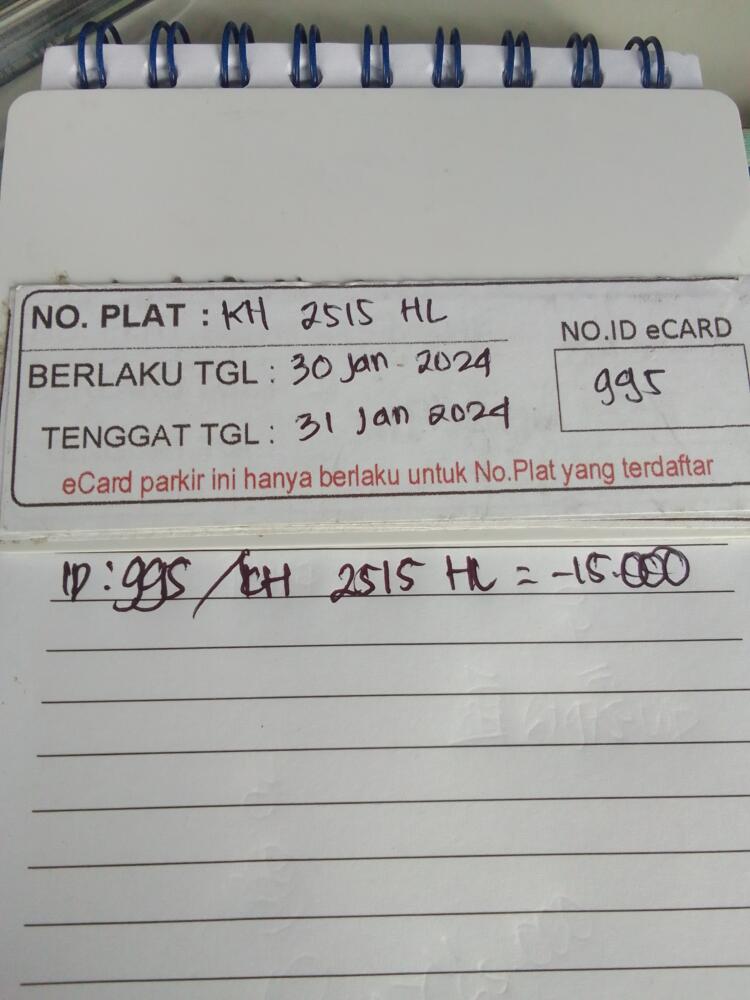 NO. PLAT : KH 2515 HL
BERLAKU TGL : 30 Jan - 2024
TENGGAT TGL : 31 Jan 2024
NO.ID eCARD
995
eCard parkir ini hanya berlaku untuk No.Plat yang terdaftar
ID : 995 / KH 2515 HL = -15.000